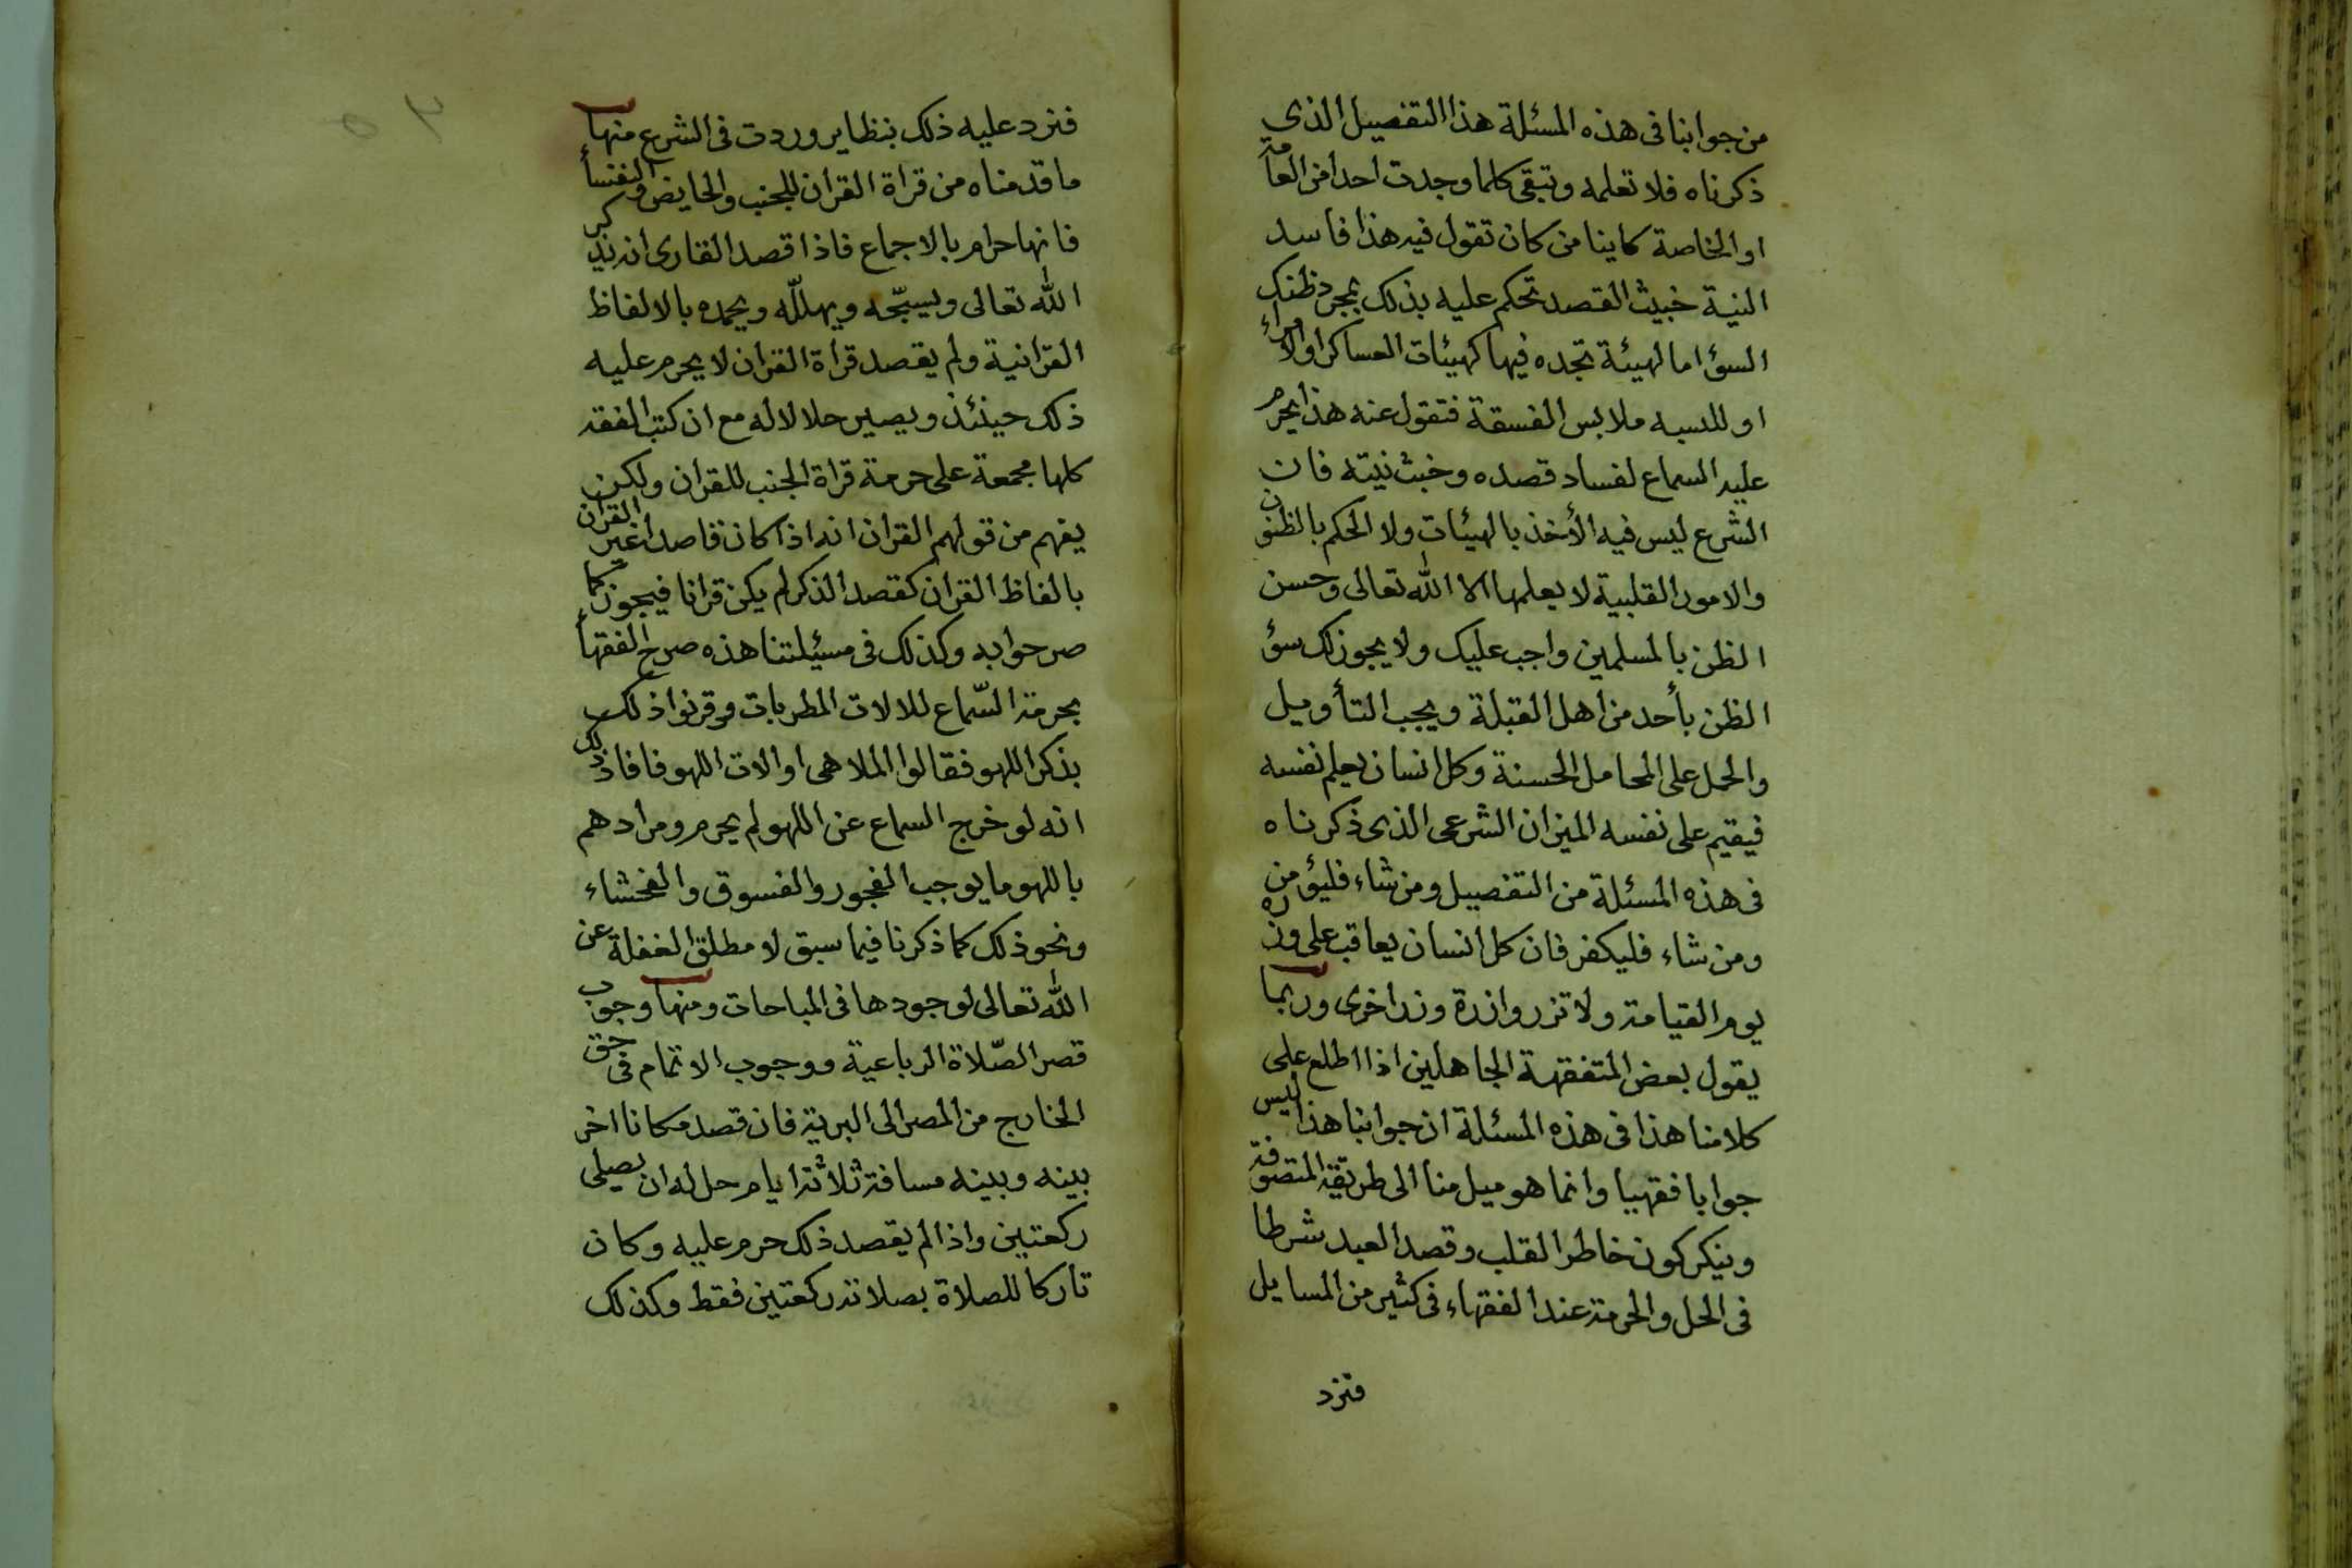 من جوابنا فى هذه المسئلة هذا التفصيل الذى
ذكرناه فلا تعلمه وتبقى كلما وجدت احدا من العامة
او الخاصة كاينا من كان تقول فيه هذا فاسد
النية خبيث القصد تحكم عليه بذلك بمجرد ظنك
السؤ اما لهيئة تجده فيها كهيئات العساكر او الامراء
او للبسه ملابس الفسقة فتقول عنه هذا يحرم
عليه السماع لفساد قصده وخبث نيته فان
الشرع ليس فيه الأخذ بالهيئات ولا الحكم بالظنون
والامور القلبية لا يعلمها الا الله تعالى وحسن
الظن بالمسلمين واجب عليك ولا يجوز لك سؤ
الظن بأحد من اهل القبلة ويجب التأويل
والحمل على المحامل الحسنة وكل انسان يعلم نفسه
فيقيم على نفسه الميزان الشرعى الذى ذكرناه
فى هذه المسئلة من التفصيل ومن شاء فليؤمن
ومن شاء فليكفر فان كل انسان يعاقب على وزره
يوم القيامة ولا تزر وازرة وزر اخرى وربما
يقول بعض المتفقهة الجاهلين اذا اطلع على
كلامنا هذا فى هذه المسئلة ان جوابنا هذا ليس
جوابا فقهيا وانما هو ميل منا الى طريقة المتصوفة
وينكر كون خاطر القلب وقصد العبد شرطا
فى الحل والحرمة عند الفقهاء فى كثير من المسايل
فنرد
فنرد عليه ذلك بنظاير وردت فى الشرع منها
ما قدمناه من قراة القران للجنب والحايض والنفسأ
فانها حرام بالاجماع فاذا قصد القارى انه يذكر
الله تعالى ويسبّحه ويهللّه ويحمده بالالفاظ
القرانية ولم يقصد قرأة القران لا يحرم عليه
ذلك حينئذ ويصير حلالا له مع ان كتب الفقه
كلها مجمعة على حرمة قراة الجنب للقران ولكن
يفهم من قولهم القران انه اذا كان قاصدا غير القران
بالفاظ القران كقصد الذكر لم يكن قرانا فيجوز كما
صرحوا به وكذلك فى مسئيلتنا هذه صرح الفقهأ
بحرمة السّماع للالات المطربات وقرنوا ذلك
بذكر اللهو فقالوا الملاهى او الات اللهو فافاد ذلك
انه لو خرج السماع عن اللهو لم يحرم ومرادهم
باللهو ما يوجب الفجور والفسوق والفحشاء
ونحو ذلك كما ذكرنا فيما سبق لا مطلق الغفلة عن
الله تعالى لوجودها فى المباحات ومنها وجوب
قصر الصّلاة الرباعية ووجوب الاتمام فى حق
الخارج من المصر الى البرية فان قصد مكانا اخر
بينه وبينه مسافة ثلاثة ايام حل له ان يصلى
ركعتين واذا لم يقصد ذلك حرم عليه وكان
تاركا للصلاة بصلاته ركعتين فقط وكذلك